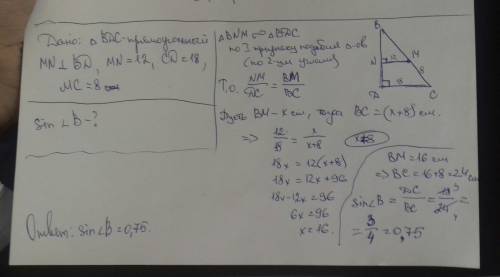 Дано: △BDC-прямоугольный
MN⊥BD, MN=12, CD=18,
MC=8 см
sin∠B-?
Ответ: sin∠B=0,75.
△BNM ∞ △BDC
по 3 признаку подобия △-ов
(по 2-ум углам)
Т.о. NM/DC = BM/BC
Пусть BM-x см, тогда BC=(x+8) см.
=> 12/18 = x/x+8
18x = 12(x+8)
18x = 12x+96
18x-12x=96
6x=96
x=16.
B
N 12 M
8
D 18 C
x+8
BM=16 см
=> BC=16+8=24 см
sin∠B = DC/BC = 18 3/24 4 =
= 3/4 = 0,75